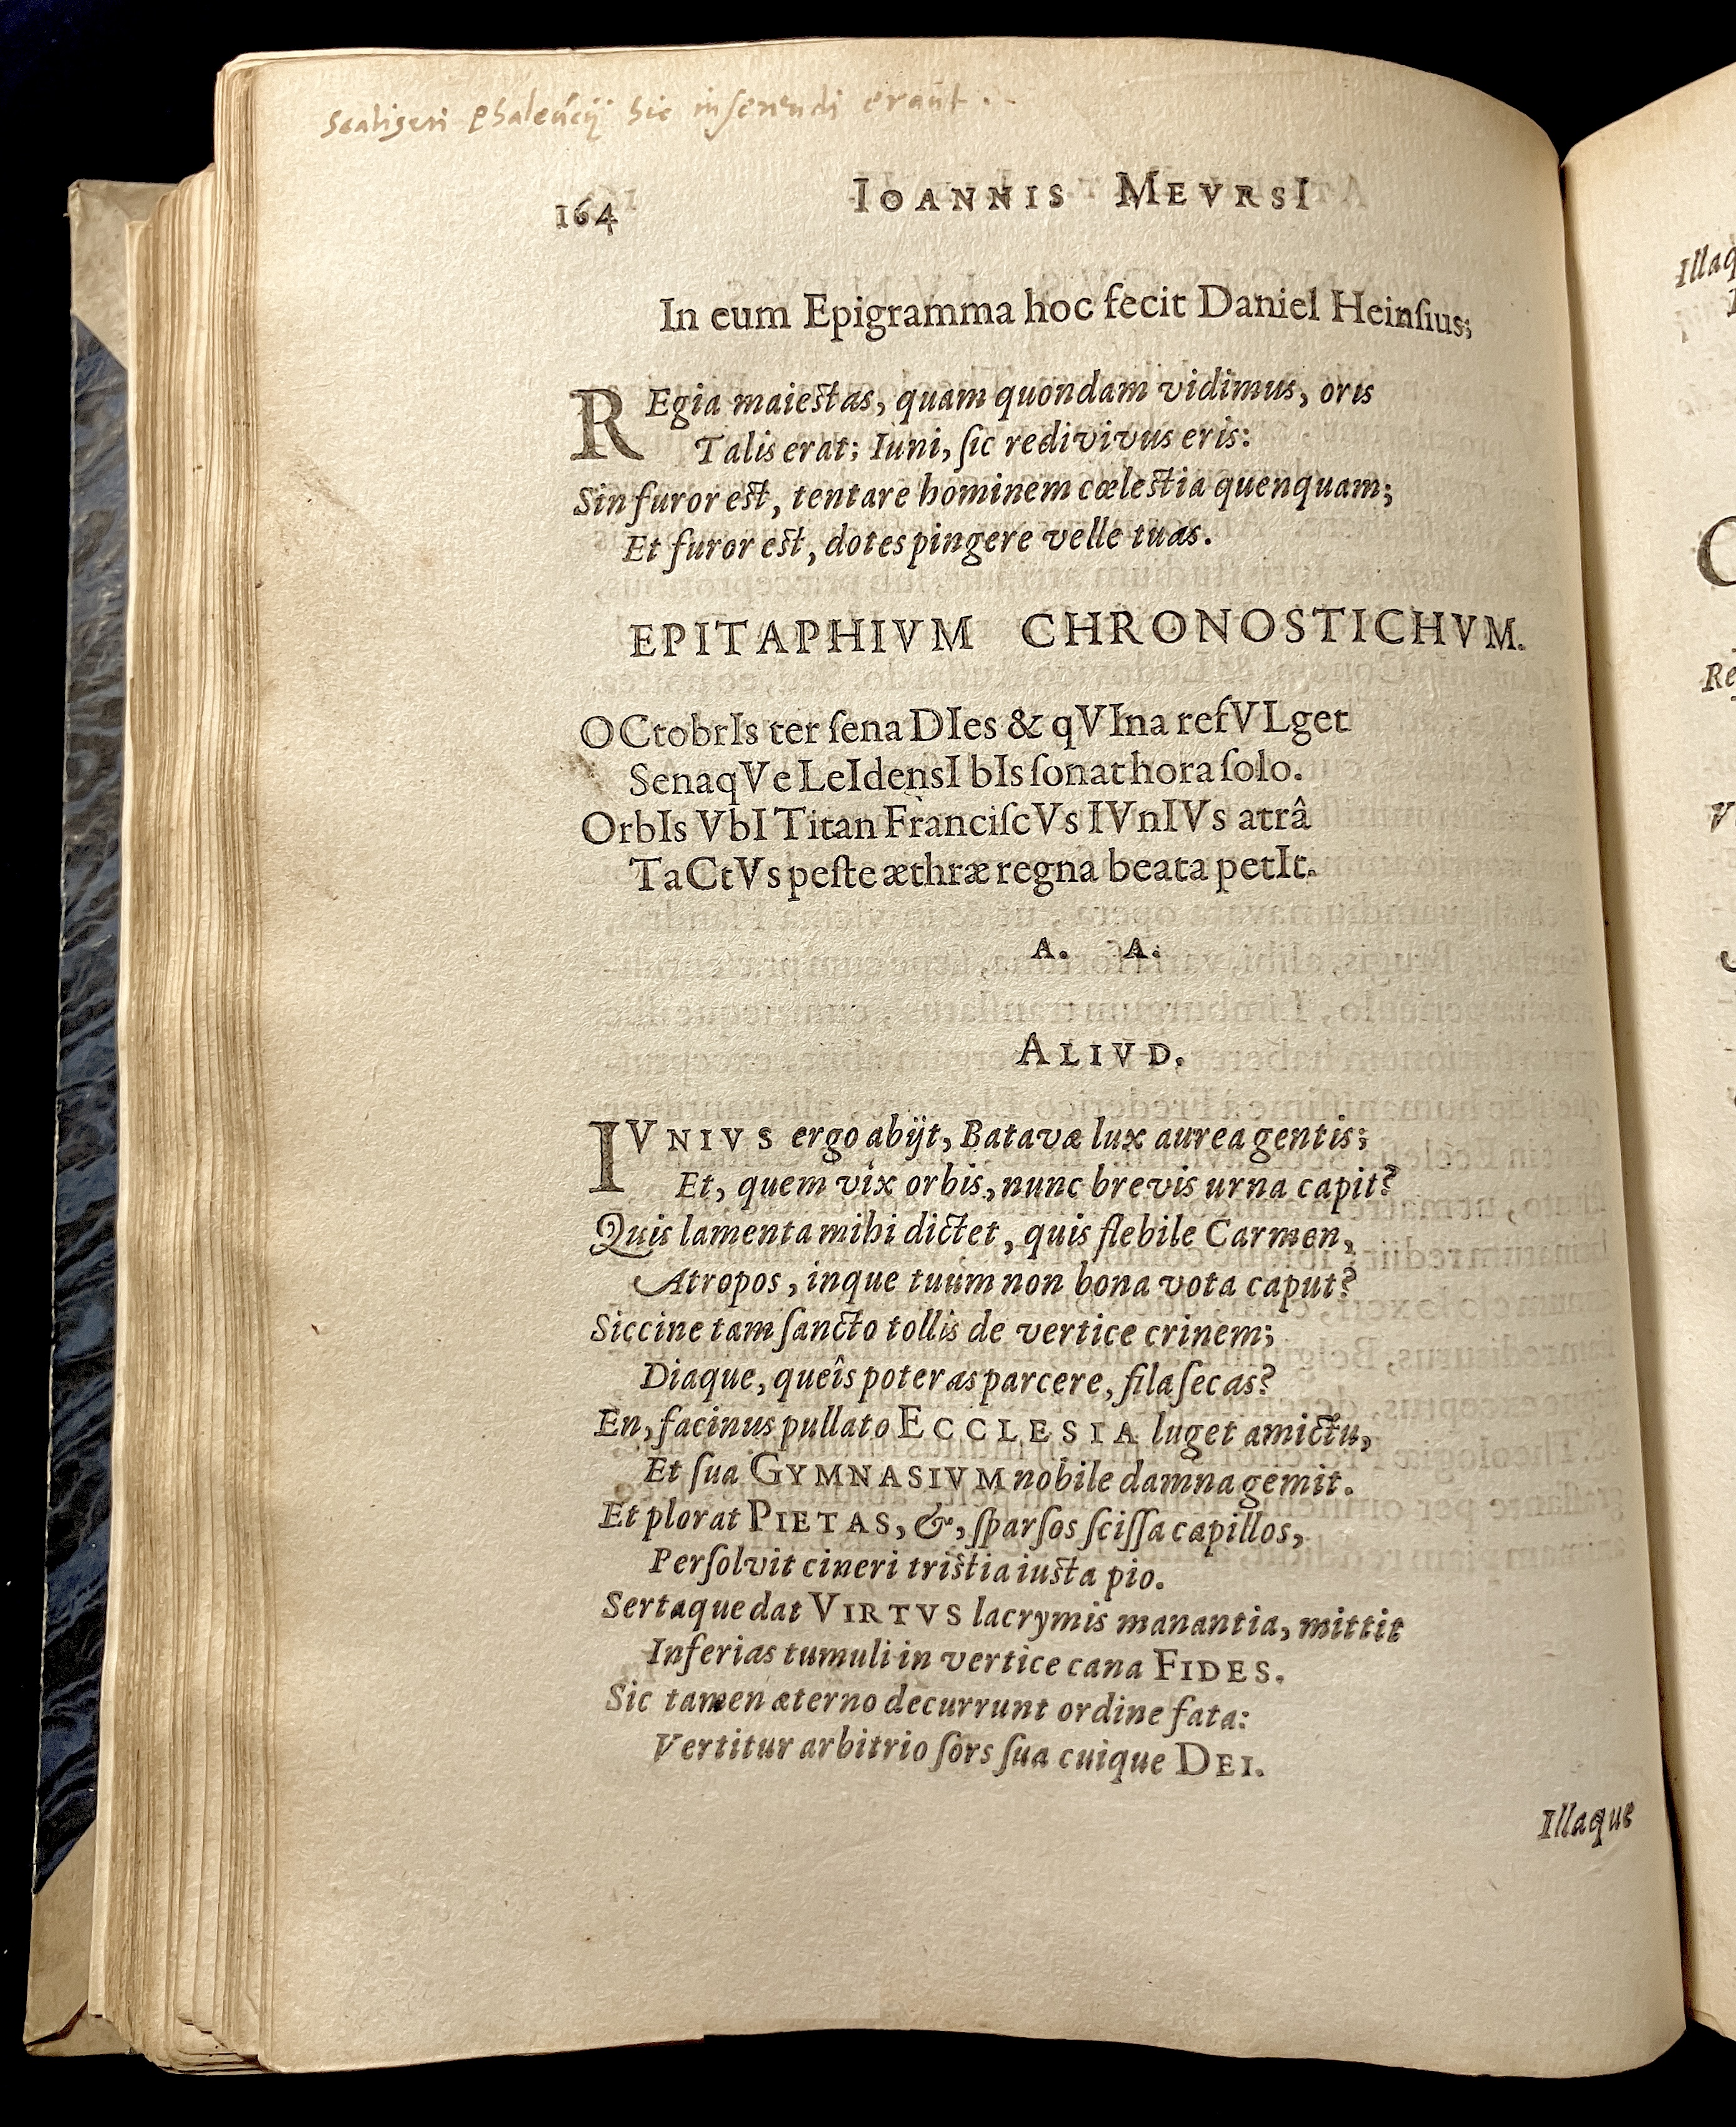 Scaligeri Phaleucij hic inserendi erant.
164 IOANNIS MEVRSI
In eum Epigramma hoc fecit Daniel Heinſius;
REgia maieſtas, quam quondam vidimus, oris
Talis erat; Iuni, ſic redivivus eris:
Sin furor eſt, tentare hominem cœleſtia quenquam;
Et furor eſt, dotes pingere velle tuas.
EPITAPHIVM CHRONOSTICHVM.
OCtobrIs ter ſena DIes & qVIna refVLget
SenaqVe LeIdensI bIs ſonat hora ſolo.
OrbIs VbI Titan FranciſcVs IVnIVs atrâ
TaCtVs peſte æthræ regna beata petIt.
A. A.
ALIVD.
IVNIVS ergo abijt, Batavæ lux aurea gentis;
Et, quem vix orbis, nunc brevis urna capit?
Quis lamenta mihi dictet, quis flebile Carmen,
Atropos, inque tuum non bona vota caput?
Siccine tam ſancto tollis de vertice crinem;
Diaque, queîs poteras parcere, fila ſecas?
En, facinus pullato ECCLESIA luget amictu,
Et ſua GYMNASIVM nobile damna gemit.
Et plorat PIETAS, &, ſparſos ſciſſa capillos,
Perſolvit cineri triſtia iuſta pio.
Sertaque dat VIRTVS lacrymis manantia, mittit
Inferias tumuli in vertice cana FIDES.
Sic tamen æterno decurrunt ordine fata:
Vertitur arbitrio ſors ſua cuique DEI.
Illaque